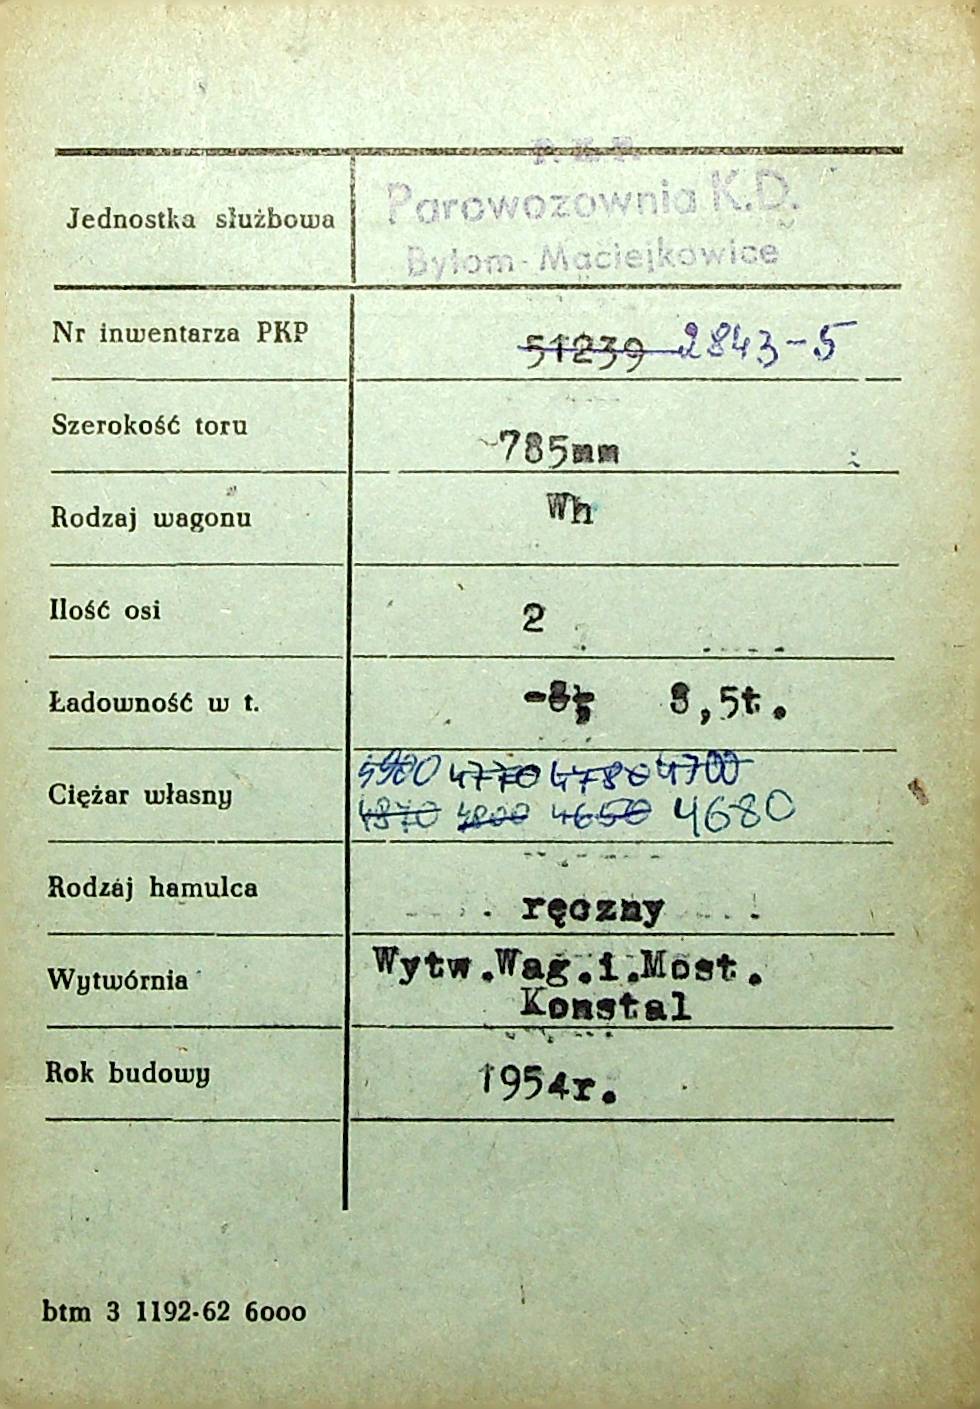 P. K. P.
Jednostka służbowa Parowozownia K.D.
Bytom-Maciejkowice
Nr inwentarza PKP 51239 2843-5
Szerokość toru 785mm
Rodzaj wagonu Wh
Ilość osi 2
Ładowność w t. 8,5t.
4770 4780 4700
Ciężar własny 4870 4800 4650 4680
Rodzaj hamulca ręczny
Wytwórnia Wytw.Wag.i.Most.
Konstal
Rok budowy 1954r.
btm 3 1192-62 6000